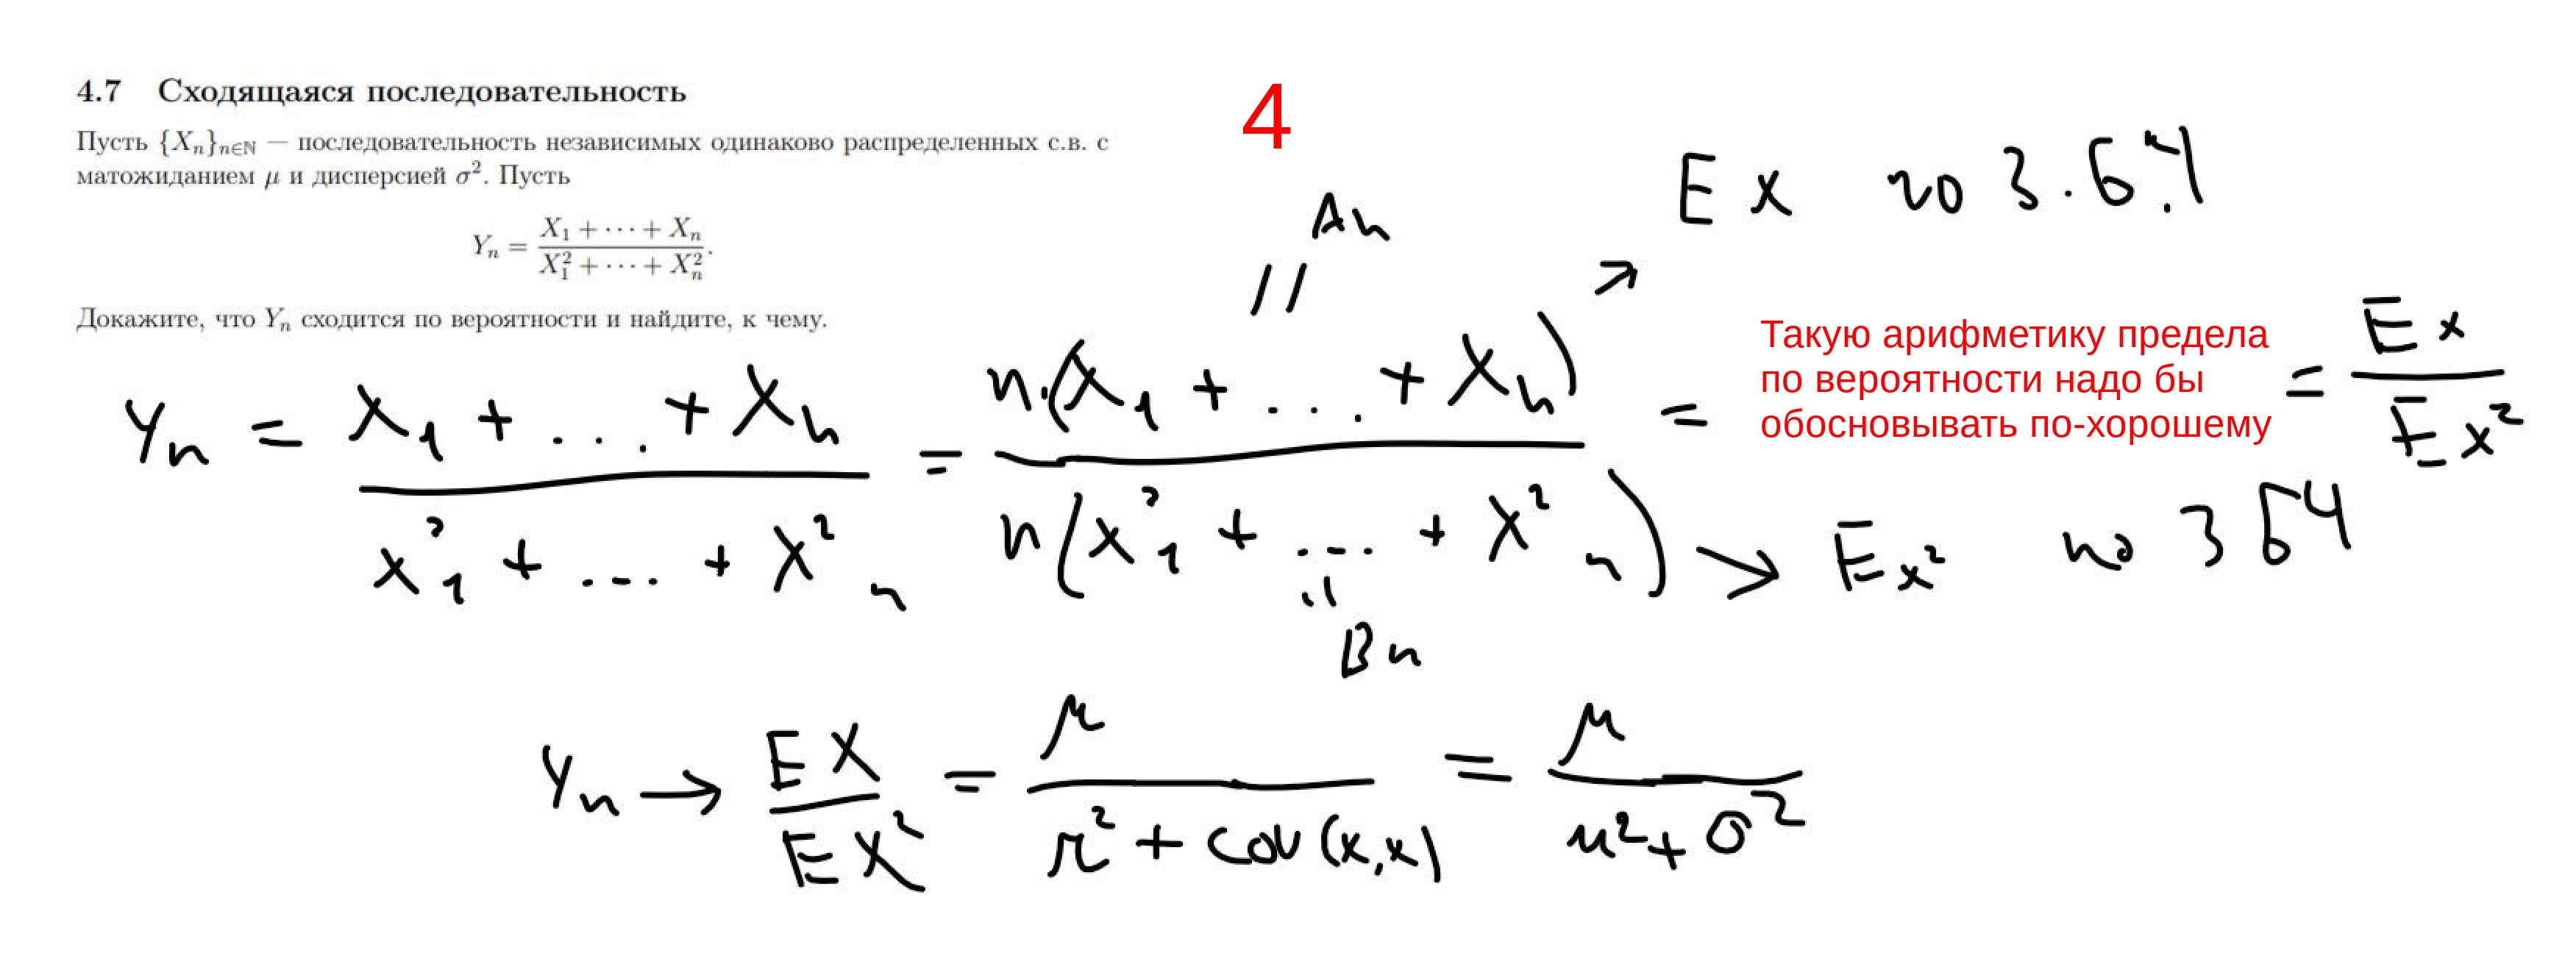 4.7 Сходящаяся последовательность
Пусть {Xₙ}ₙ∈ℕ — последовательность независимых одинаково распределенных с.в. с
матожиданием μ и дисперсией σ². Пусть
Yₙ = (X₁ + ⋯ + Xₙ) / (X₁² + ⋯ + Xₙ²).
Докажите, что Yₙ сходится по вероятности и найдите, к чему.
4
Aₙ
||
↗ Ex по З.Б.Ч.
Yₙ = (x₁ + ... + xₙ) / (x₁² + ... + x²ₙ) = n·(x₁ + ... + xₙ) / n(x₁² + ... + x²ₙ) =
Такую арифметику предела
по вероятности надо бы
обосновывать по-хорошему
= Ex / Ex²
→ Ex² по ЗБЧ
||
Bₙ
Yₙ → EX / EX² = μ / (μ² + cov(x,x)) = μ / (μ² + σ²)